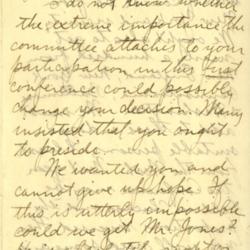 I do not know whether
the extreme importance the
committee attaches to your
participation in this first
conference could possibly
change your decision. Many
insisted that you ought
to preside.
We wanted you and
cannot give up hope. If
this is utterly impossible
could we get Mr. Jones?